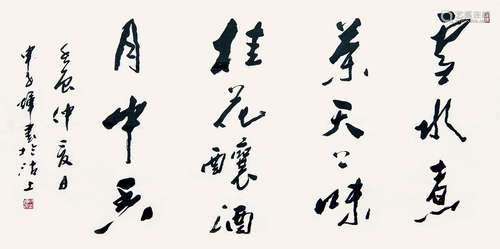 雪水煮
茶天上味
桂花釀酒
月中香
壬辰仲夏月
書於沽上